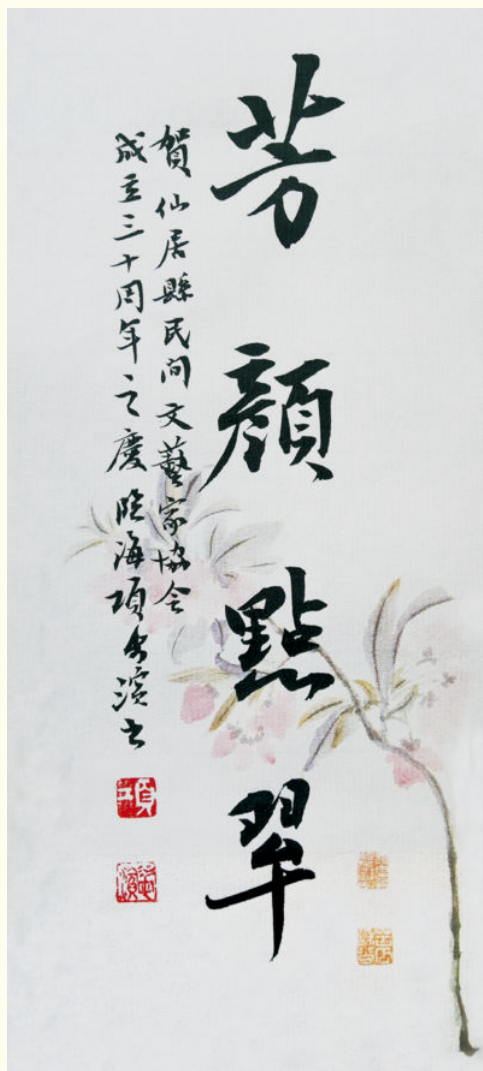 芳顏點翠
賀仙居縣民间文藝家協会
成立三十周年之慶 临海項士濱书